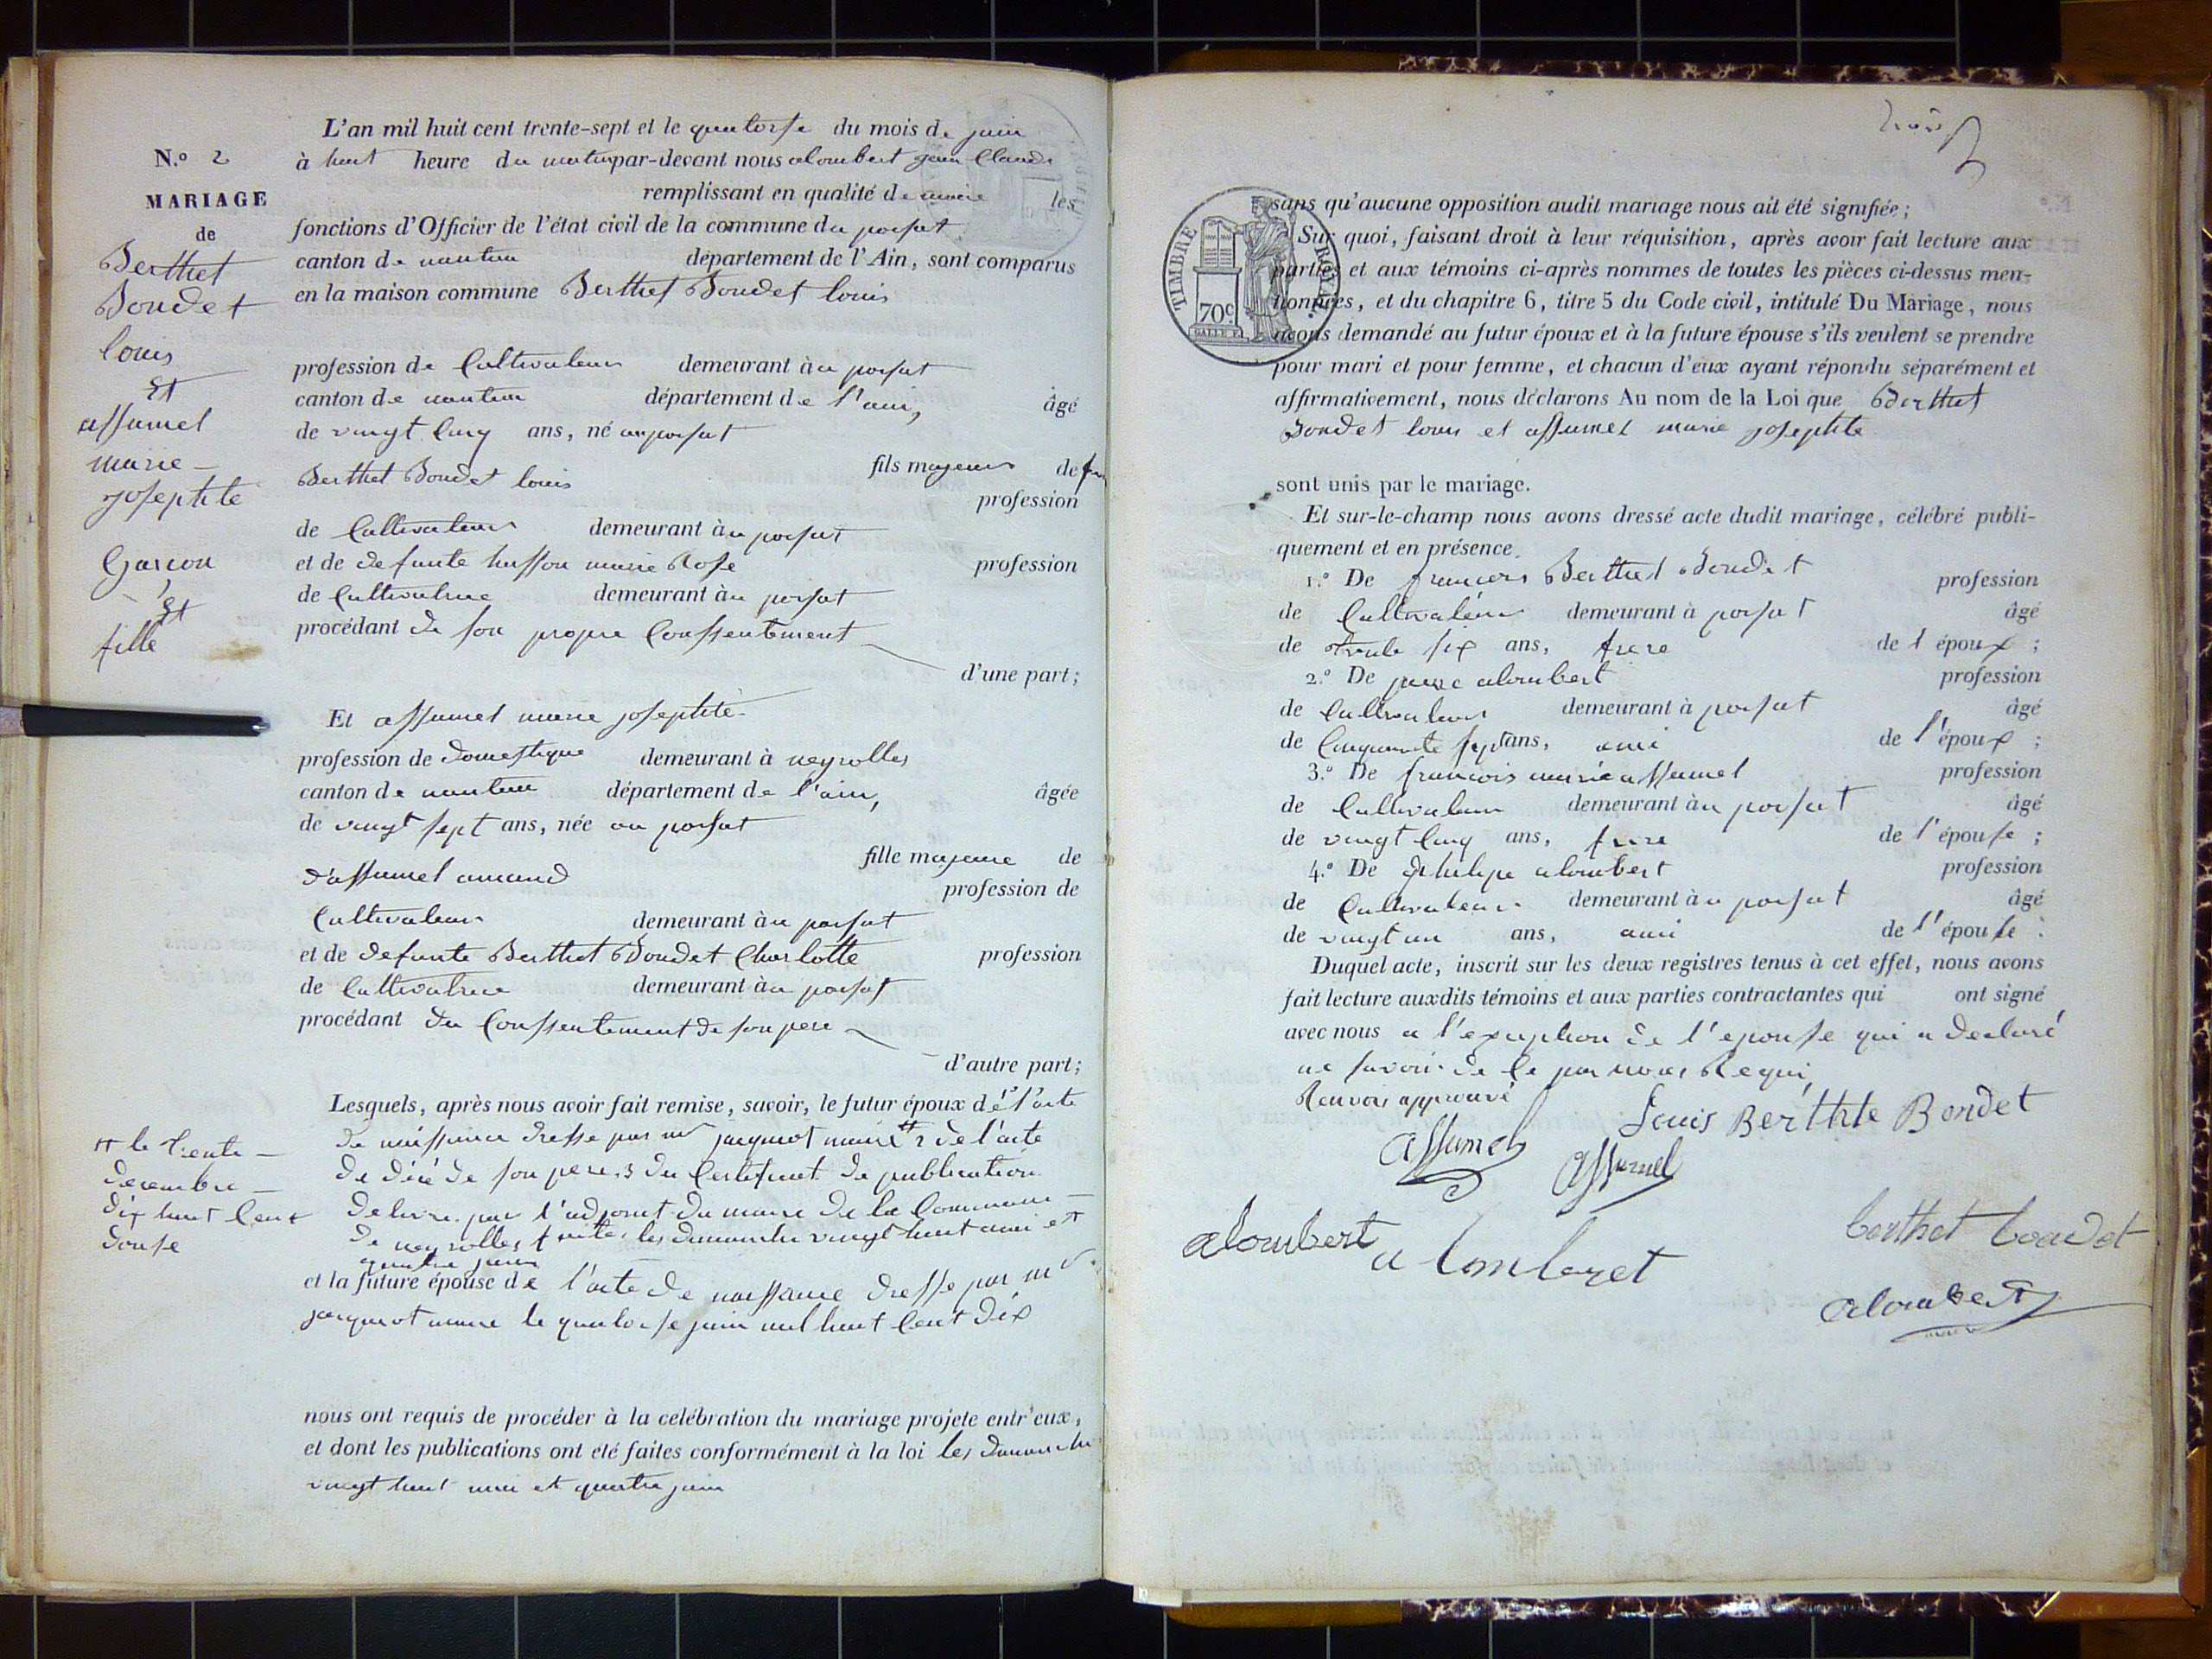 N.o 2
MARIAGE
de
Berthet
Boudet
louis
Et
assumel
marie –
josephte
Garcon
Et
fille
L'an mil huit cent trente-sept et le quatorse du mois de juin
à huit heure du matin par-devant nous alombert jean Claude
remplissant en qualité de maire les
fonctions d'Officier de l'état civil de la commune du poisat
canton de nantua département de l'Ain, sont comparus
en la maison commune Berthet Boudet louis
profession de Cultivateur demeurant àu poisat
canton de nantua département de l'ain, âgé
de vingt Cinq ans, né au poisat
fils majeur de feu
Berthet Boudet louis
profession
de Cultivateur demeurant àu poisat
et de defunte husson marie Rose profession
de Cultivatrice demeurant àu poisat
procédant de son propre Conssentement
d'une part;
Et assumel marie josephte
profession de domestique demeurant à neyrolles
canton de nantua département de l'ain, âgée
de vingt sept ans, née au poisat
fille majeure de
d'assumel amand
profession de
Cultivateur demeurant àu poisat
et de defunte Berthet Boudet Charlotte profession
de Cultivatrice demeurant àu poisat
procédant du Conssentement de son pere
d'autre part;
Lesquels, après nous avoir fait remise, savoir, le futur époux de 1° l'acte
de naissance dresse par mr jacquiot maire tt 2 de l'acte
de décé de son pere. 3 du Certificat de publication
delivre par l'adjoint du maire de la Commune –
de neyrolles faites les dimanche vingt huit mai et
quatre juin
tt le trente –
decembre –
dix huit Cent
douse
et la future épouse de l'acte de naissance dresse par mr
jacquiot maire le quatorse juin mil huit Cent dix
nous ont requis de procéder à la celébration du mariage projete entr'eux,
et dont les publications ont eté faites conformément à la loi les dimanche
vingt huit mai et quatre juin
trois
TIMBRE ROYAL
70c.
sans qu'aucune opposition audit mariage nous ait été signifiée;
Sur quoi, faisant droit à leur réquisition, après avoir fait lecture aux
parties et aux témoins ci-après nommes de toutes les pièces ci-dessus men-
tionnées, et du chapitre 6, titre 5 du Code civil, intitulé Du Mariage, nous
avons demandé au futur époux et à la future épouse s'ils veulent se prendre
pour mari et pour femme, et chacun d'eux ayant répondu séparément et
affirmativement, nous déclarons Au nom de la Loi que Berthet
Boudet louis et assumel marie josephte
sont unis par le mariage.
Et sur-le-champ nous avons dressé acte dudit mariage, célébré publi-
quement et en présence
1.o De francois Berthet Boudet profession
de Cultivateur demeurant à poisat âgé
de trente six ans, frere de l époux ;
2.o De alombert profession
de Cultivateur demeurant à poisat âgé
de Cinquante sept ans, ami de l'époux ;
3.o De francois marie assumel profession
de Cultivateur demeurant àu poisat âgé
de vingt Cinq ans, frere de l'épouse ;
4.o De philipe alombert profession
de Cultivateur demeurant àu poisat âgé
de vingt un ans, ami de l'épouse :
Duquel acte, inscrit sur les deux registres tenus à cet effet, nous avons
fait lecture auxdits témoins et aux parties contractantes qui ont signé
avec nous a l'exception de l'epouse qui a declaré
ne savoir de Ce par nous Requi
Renvoi approuvé
Louis Berthte Bondet
assumel assumel
alombert a lombaret berthet boudet
alombert